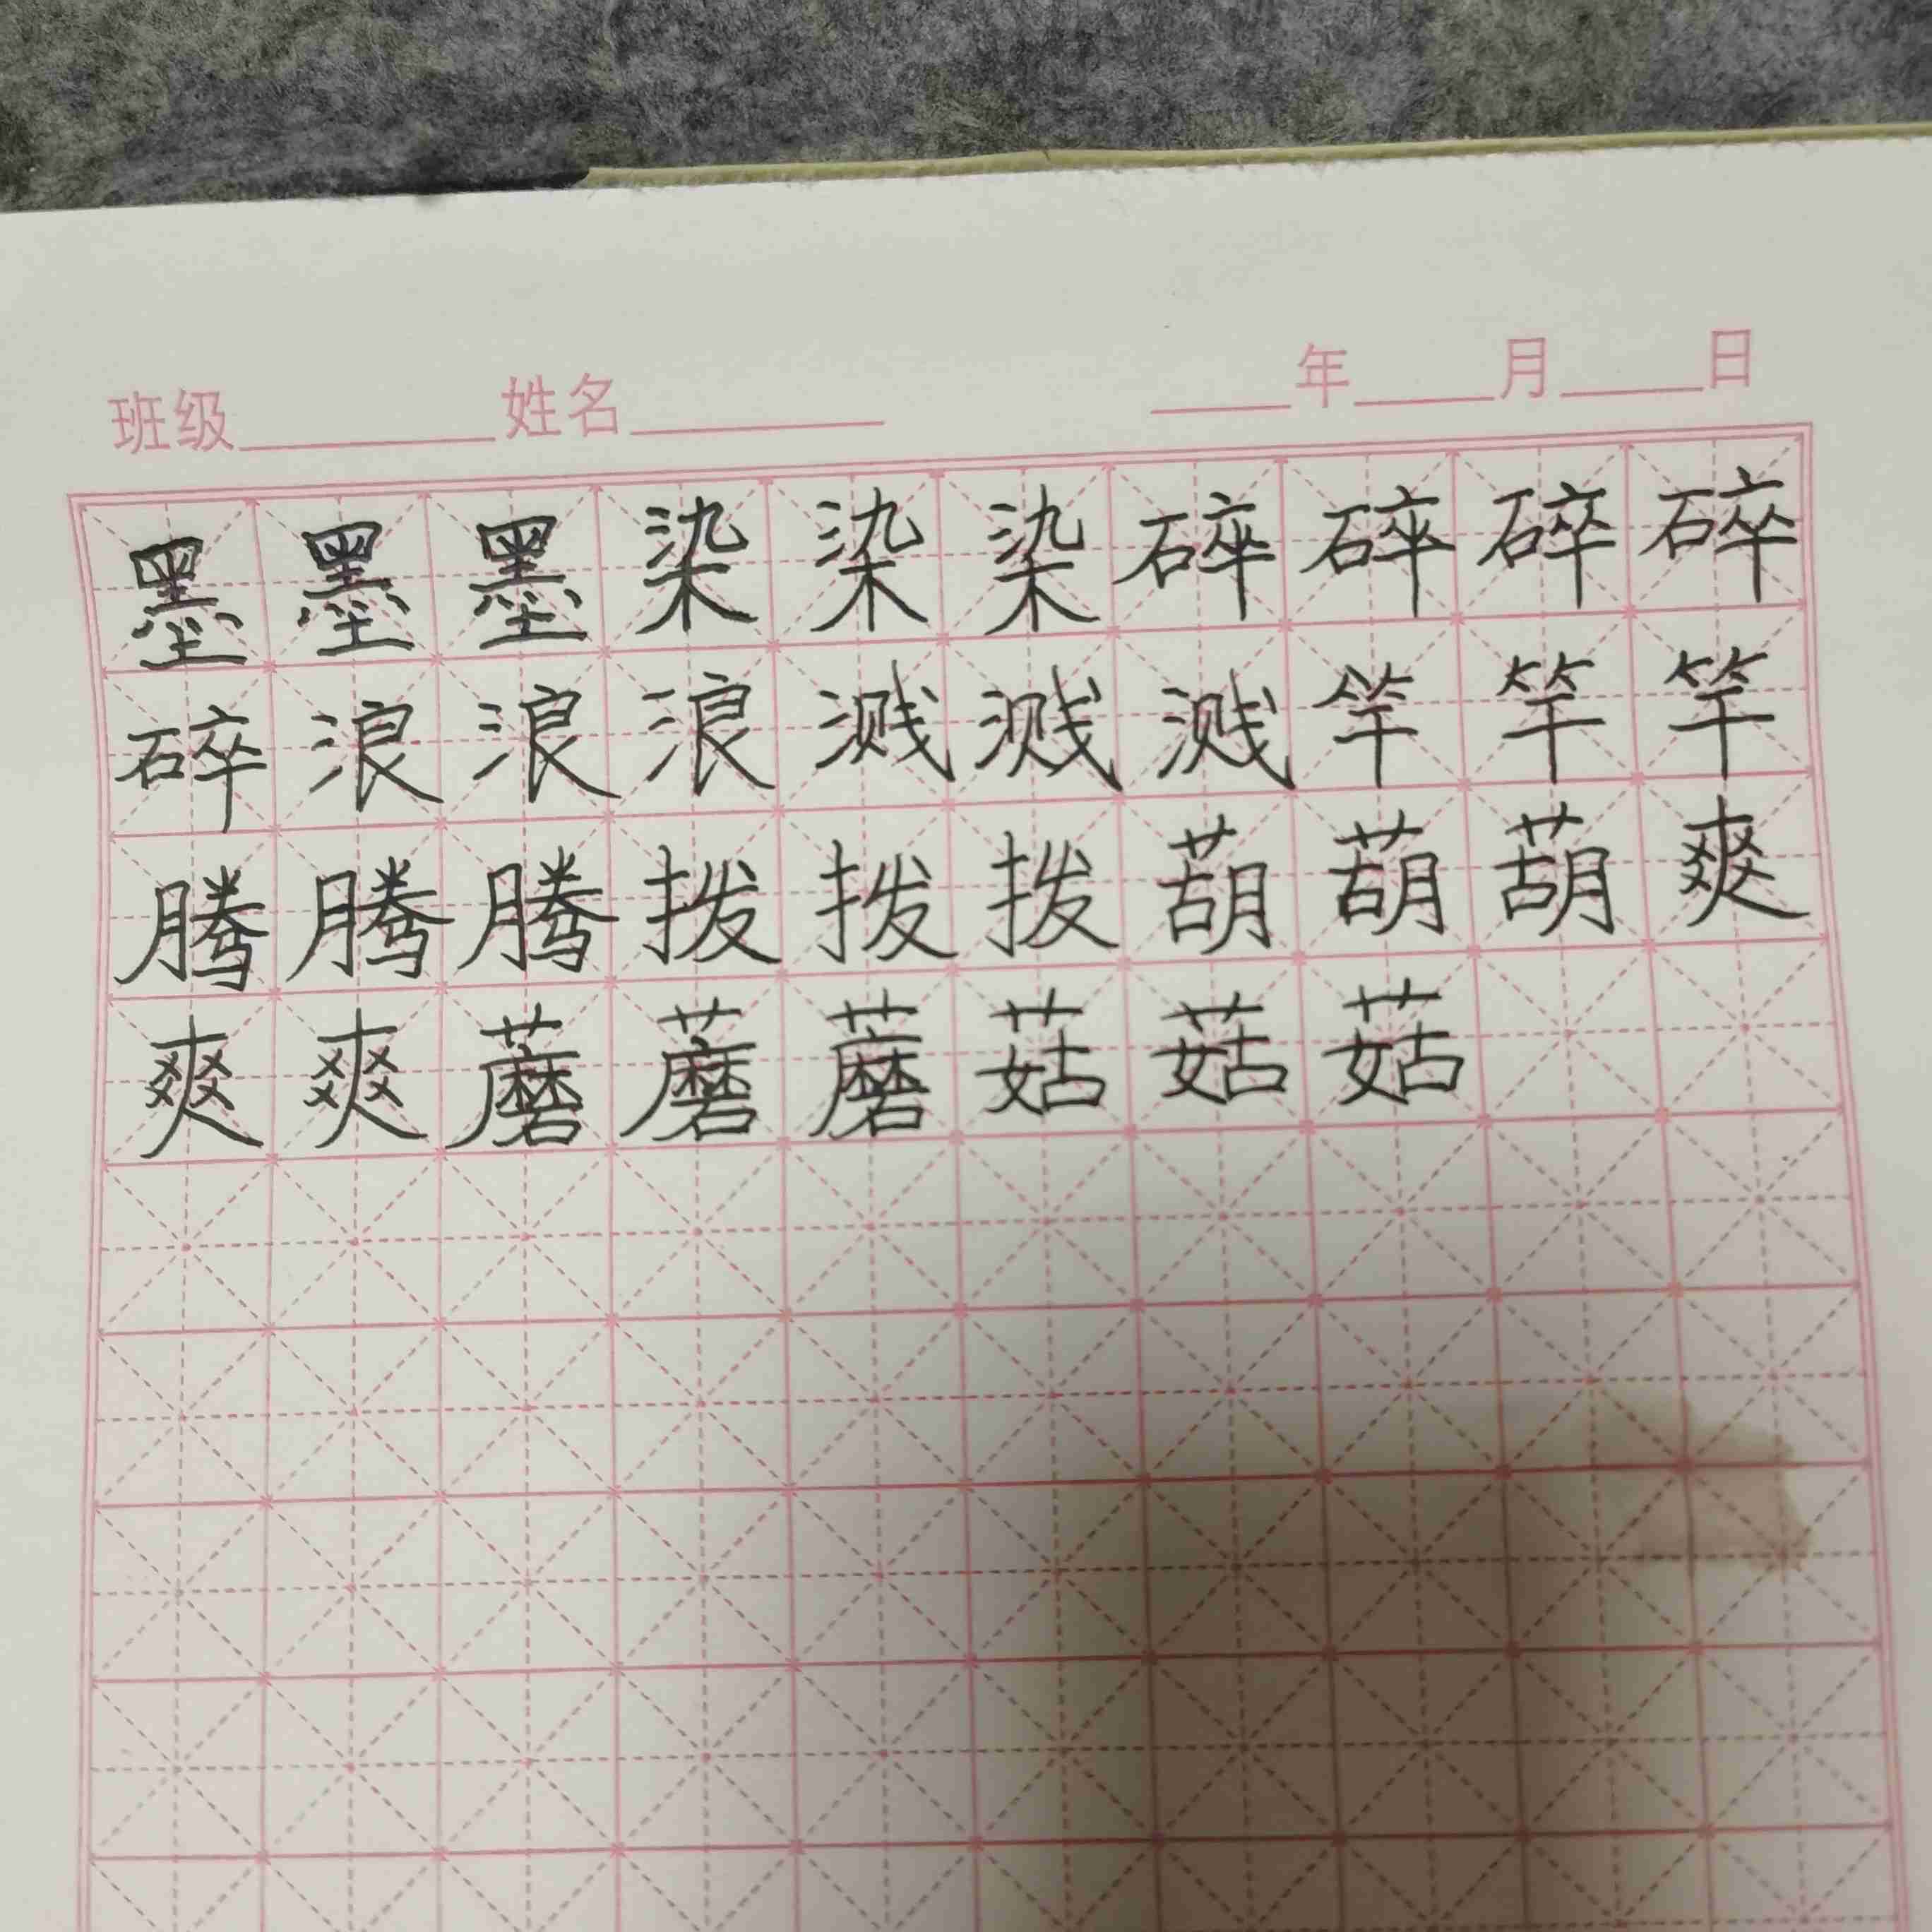 班级 姓名 年 月 日
墨墨墨染染染碎碎碎碎
碎浪浪浪溅溅溅竿竿竿
腾腾腾拨拨拨葫葫葫爽
爽爽蘑蘑蘑菇菇菇